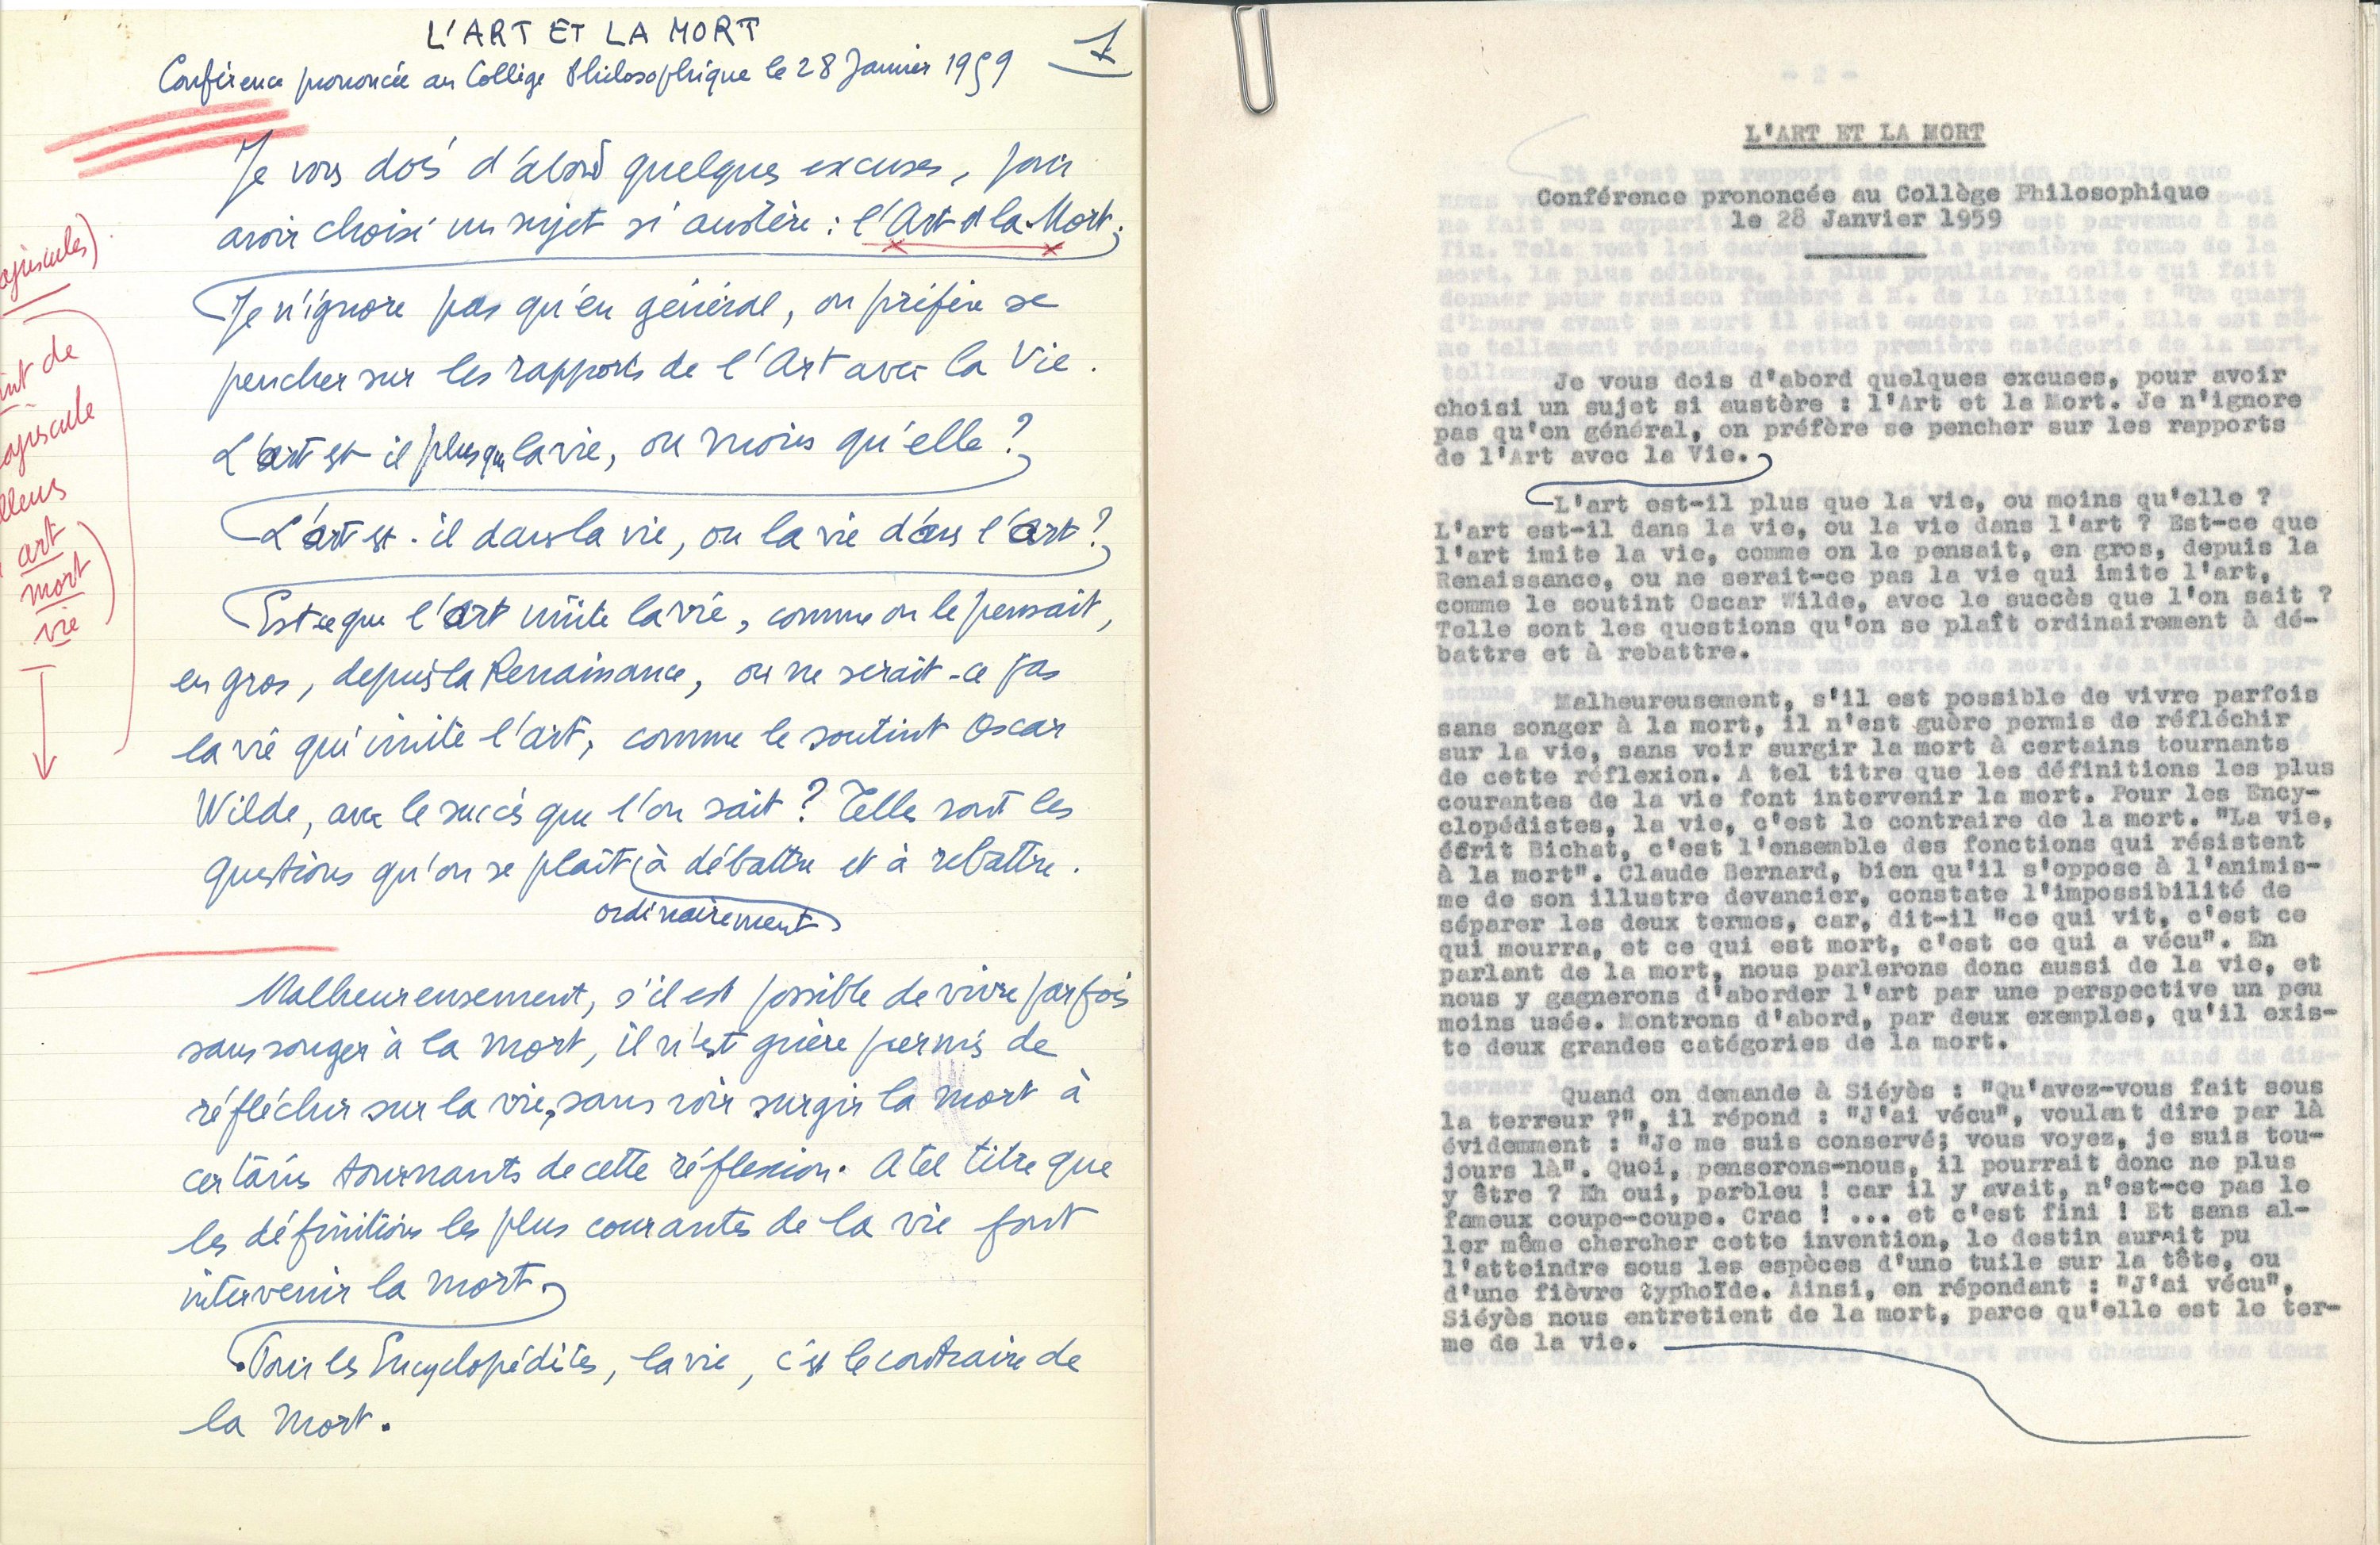 L'ART ET LA MORT
1
Conférence prononcée au Collège Philosophique le 28 Janvier 1959
Je vous dois d'abord quelques excuses, pour
avoir choisi un sujet si austère : l'Art et la Mort.
Je n'ignore pas qu'en général, on préfère se
pencher sur les rapports de l'Art avec la Vie.
L'art est-il plus que la vie, ou moins qu'elle ?
L'art est-il dans la vie, ou la vie dans l'art ?
Est-ce que l'art imite la vie, comme on le pensait,
en gros, depuis la Renaissance, ou ne serait-ce pas
la vie qui imite l'art, comme le soutint Oscar
Wilde, avec le succès que l'on sait ? Telle sont les
questions qu'on se plaît à débattre et à rebattre.
ordinairement
Malheureusement, s'il est possible de vivre parfois
sans songer à la mort, il n'est guère permis de
réfléchir sur la vie, sans voir surgir la mort à
certains tournants de cette réflexion. A tel titre que
les définitions les plus courantes de la vie font
intervenir la mort.
Pour les Encyclopédistes, la vie, c'est le contraire de
la mort.
ajuscules)
int de
ajuscule
lleurs
art
mort
vie
- 2 -
L'ART ET LA MORT
Conférence prononcée au Collège Philosophique
le 28 Janvier 1959
Je vous dois d'abord quelques excuses, pour avoir
choisi un sujet si austère : l'Art et la Mort. Je n'ignore
pas qu'en général, on préfère se pencher sur les rapports
de l'Art avec la Vie.
L'art est-il plus que la vie, ou moins qu'elle ?
L'art est-il dans la vie, ou la vie dans l'art ? Est-ce que
l'art imite la vie, comme on le pensait, en gros, depuis la
Renaissance, ou ne serait-ce pas la vie qui imite l'art,
comme le soutint Oscar Wilde, avec le succès que l'on sait ?
Telle sont les questions qu'on se plaît ordinairement à dé-
battre et à rebattre.
Malheureusement, s'il est possible de vivre parfois
sans songer à la mort, il n'est guère permis de réfléchir
sur la vie, sans voir surgir la mort à certains tournants
de cette réflexion. A tel titre que les définitions les plus
courantes de la vie font intervenir la mort. Pour les Ency-
clopédistes, la vie, c'est le contraire de la mort. "La vie,
écrit Bichat, c'est l'ensemble des fonctions qui résistent
à la mort". Claude Bernard, bien qu'il s'oppose à l'animis-
me de son illustre devancier, constate l'impossibilité de
séparer les deux termes, car, dit-il "ce qui vit, c'est ce
qui mourra, et ce qui est mort, c'est ce qui a vécu". En
parlant de la mort, nous parlerons donc aussi de la vie, et
nous y gagnerons d'aborder l'art par une perspective un peu
moins usée. Montrons d'abord, par deux exemples, qu'il exis-
te deux grandes catégories de la mort.
Quand on demande à Siéyès : "Qu'avez-vous fait sous
la terreur ?", il répond : "J'ai vécu", voulant dire par là
évidemment : "Je me suis conservé; vous voyez, je suis tou-
jours là". Quoi, penserons-nous, il pourrait donc ne plus
y être ? Eh oui, parbleu ! car il y avait, n'est-ce pas le
fameux coupe-coupe. Crac ! ... et c'est fini ! Et sans al-
ler même chercher cette invention, le destin aurait pu
l'atteindre sous les espèces d'une tuile sur la tête, ou
d'une fièvre typhoïde. Ainsi, en répondant : "J'ai vécu",
Siéyès nous entretient de la mort, parce qu'elle est le ter-
me de la vie.